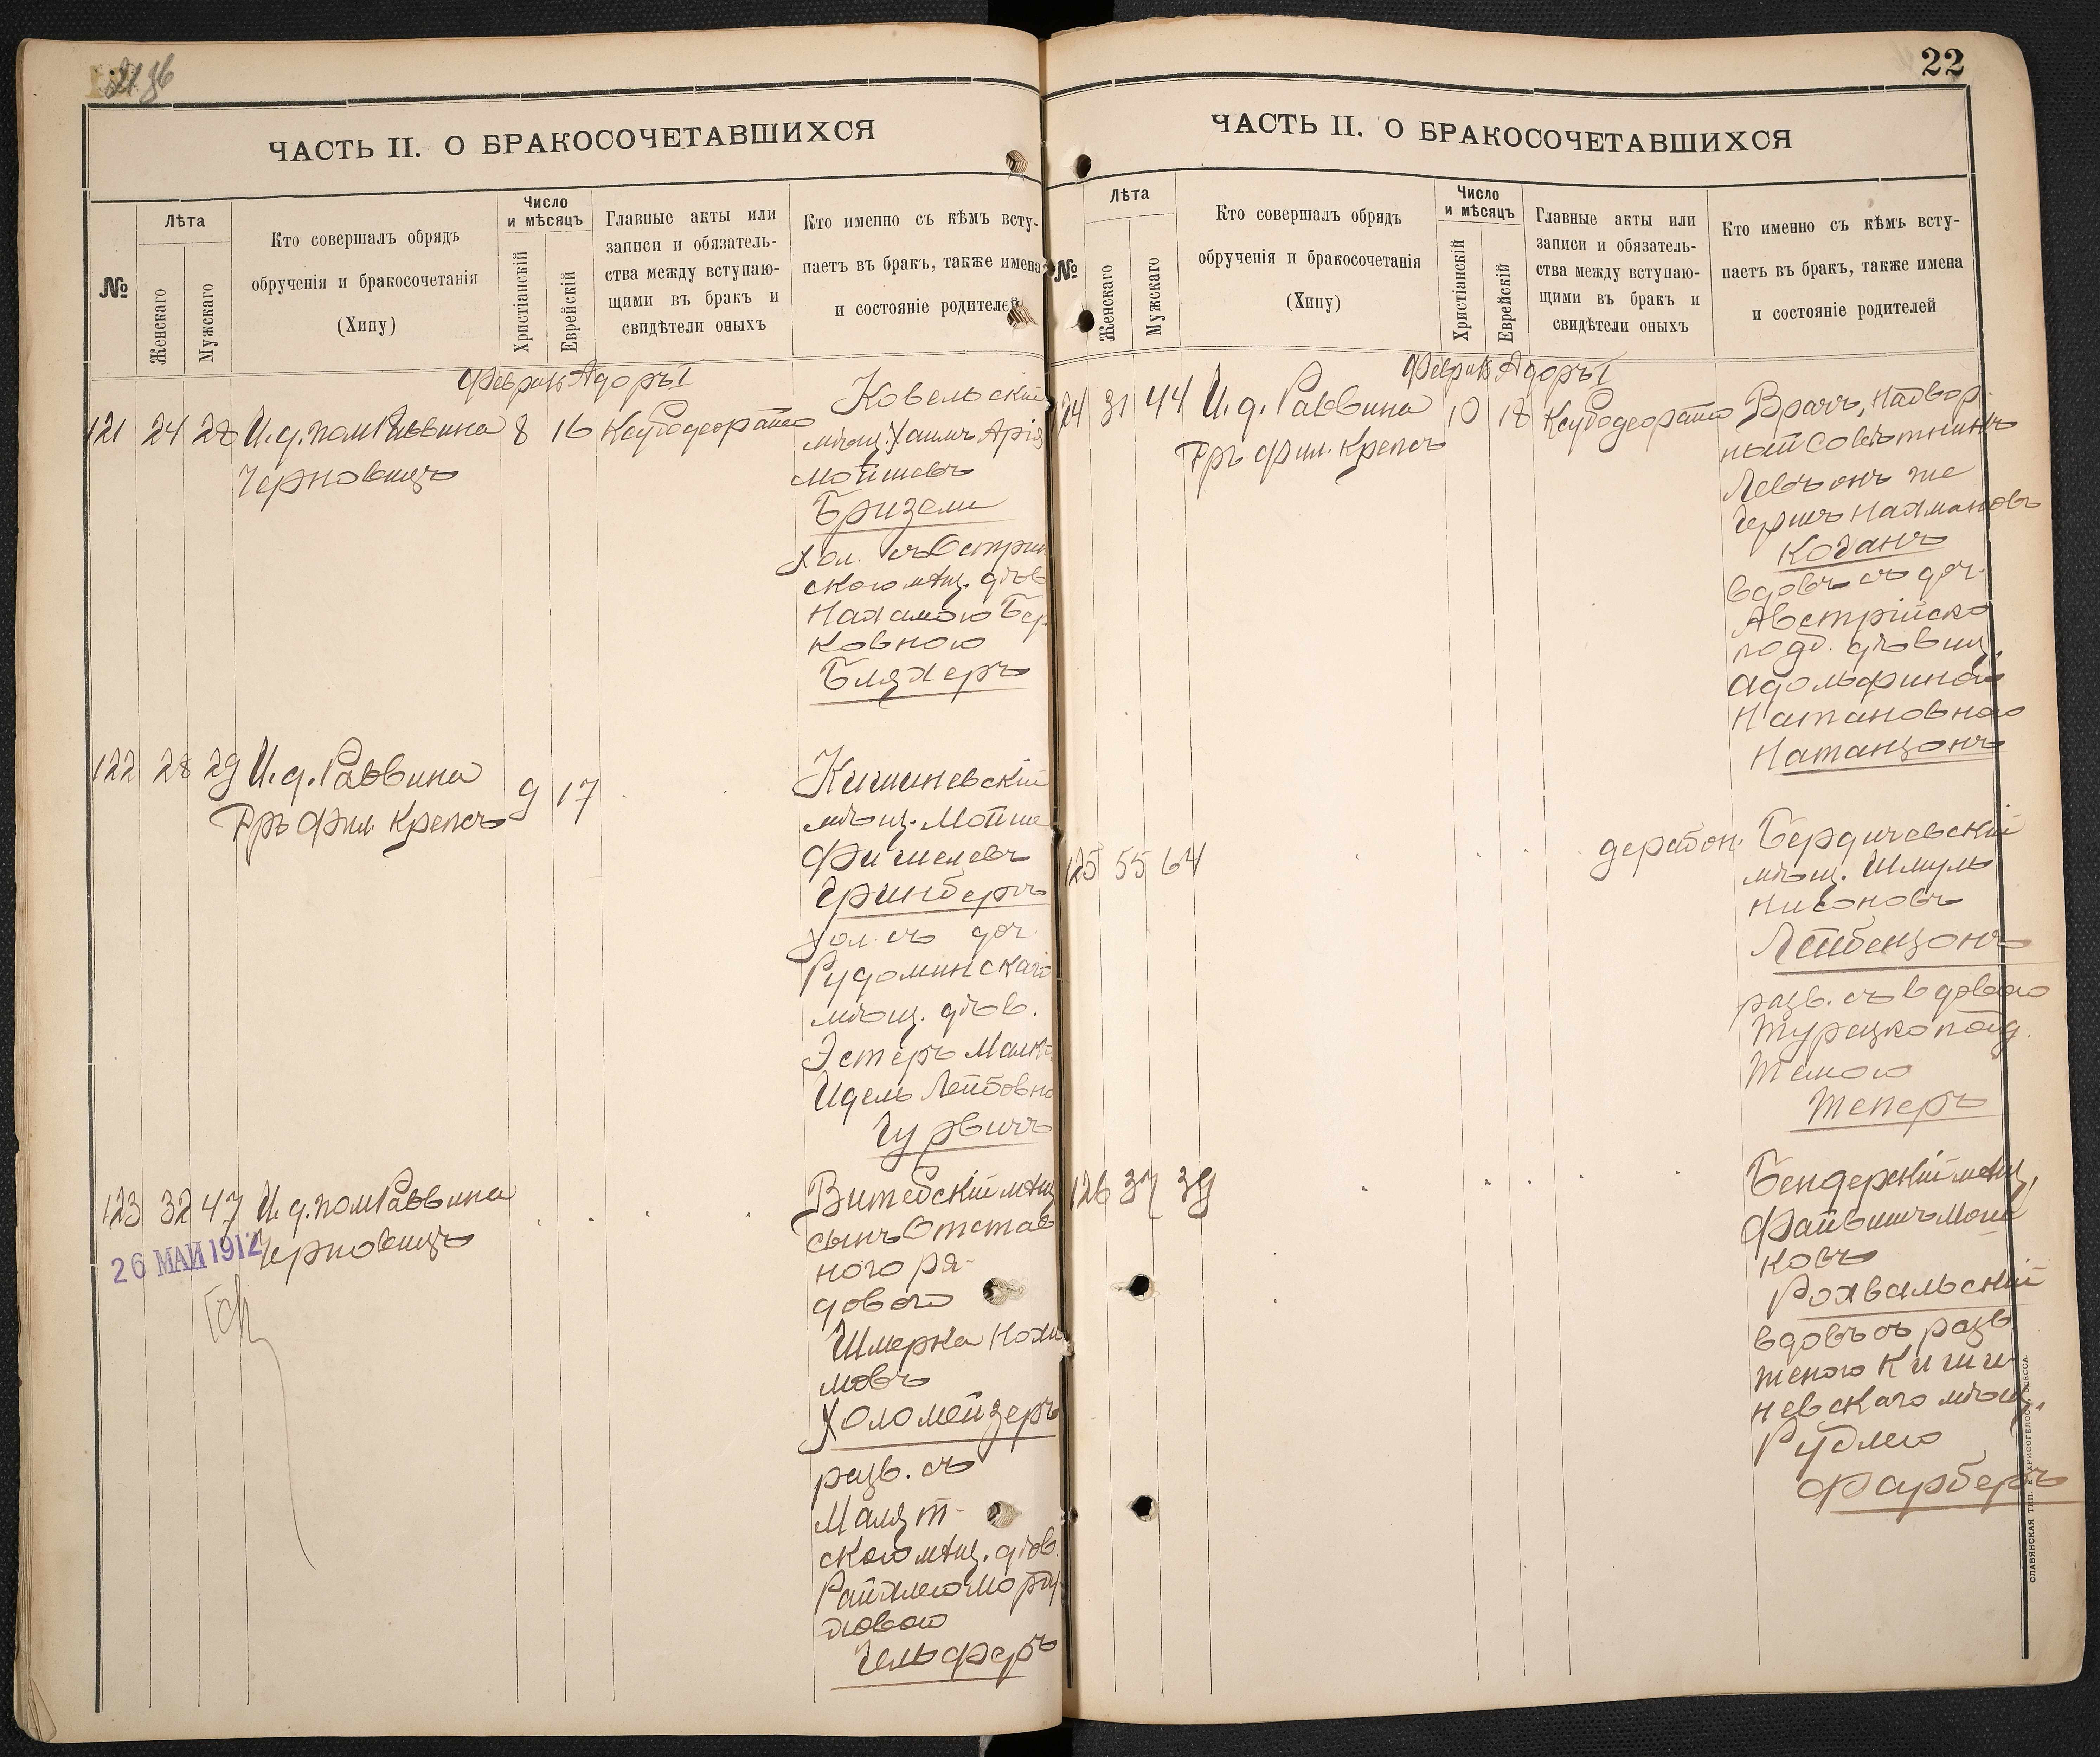 ЧАСТЬ II. О БРАКОСОЧЕТАВШИХСЯ
№
Лѣта
Женскаго
Мужскаго
Кто совершалъ обрядъ
обрученія и бракосочетанія
(Хипу)
Число
и мѣсяцъ
Христіанскій
Еврейскій
Главные акты или
записи и обязатель-
ства между вступаю-
щими въ бракъ и
свидѣтели оныхъ
Кто именно съ кѣмъ всту-
паетъ въ бракъ, также имена
и состояніе родителей
Адоръ I
121 24 28 И. д. пом Раввина 8 16
Черновицъ
Ковельскій
мѣщ. Хаимъ Арія
Мойшевъ
Бризели
хол. съ
ского мѣщ. дѣв
Нахамою Бер
ковною
Бляхеръ
122 28 29 И. д. Раввина 9 17
Фил Крепсъ
Кишиневскій
мѣщ. Мойше
Фишелевъ
Гринбергъ
хол. съ доч.
Рудоминскаго
мѣщ. дѣв.
Эстеръ Малка
Идель Лейбовно
Гурвичъ
123 32 47 И. д. пом Раввина
Черновицъ
26 МАИ 1912
Витебскій мѣщ
сынъ Отстав
ного ря-
дового
Шмерка Нохи
мовъ
Холомейзеръ
разв. съ
Малят-
ского мѣщ. дѣв.
Гельферъ
22
ЧАСТЬ II. О БРАКОСОЧЕТАВШИХСЯ
№
Лѣта
Женскаго
Мужскаго
Кто совершалъ обрядъ
обрученія и бракосочетанія
(Хипу)
Число
и мѣсяцъ
Христіанскій
Еврейскій
Главные акты или
записи и обязатель-
ства между вступаю-
щими въ бракъ и
свидѣтели оныхъ
Кто именно съ кѣмъ всту-
паетъ въ бракъ, также имена
и состояніе родителей
Адоръ I
124 31 44 И. д. Раввина 10 18
Фил. Крепсъ
Врачъ, Надвор
ный Совѣтникъ
Левъ онъ же
Гершъ Нахмановъ
Коганъ
вдовъ съ доч.
Австрійско
подд. дѣвиц.
Адольфиною
Натановною
Натанзонъ
125 55 64
Бердичевскій
мѣщ. Шмуль
Нисоновъ
Лейбензонъ
разв. съ вдовою
Турецко под.
Темою
Теперъ
126 37 39
Бендерскій мѣщ.
Файвишъ Мош
ковъ
Рохвальскій
вдовъ съ разв
женою Киши-
невскаго мѣщ.
Рухлею
Фарберъ
СЛАВЯНСКАЯ ТИП. Е. ХРИСОГЕЛОСЪ, ОДЕССА.